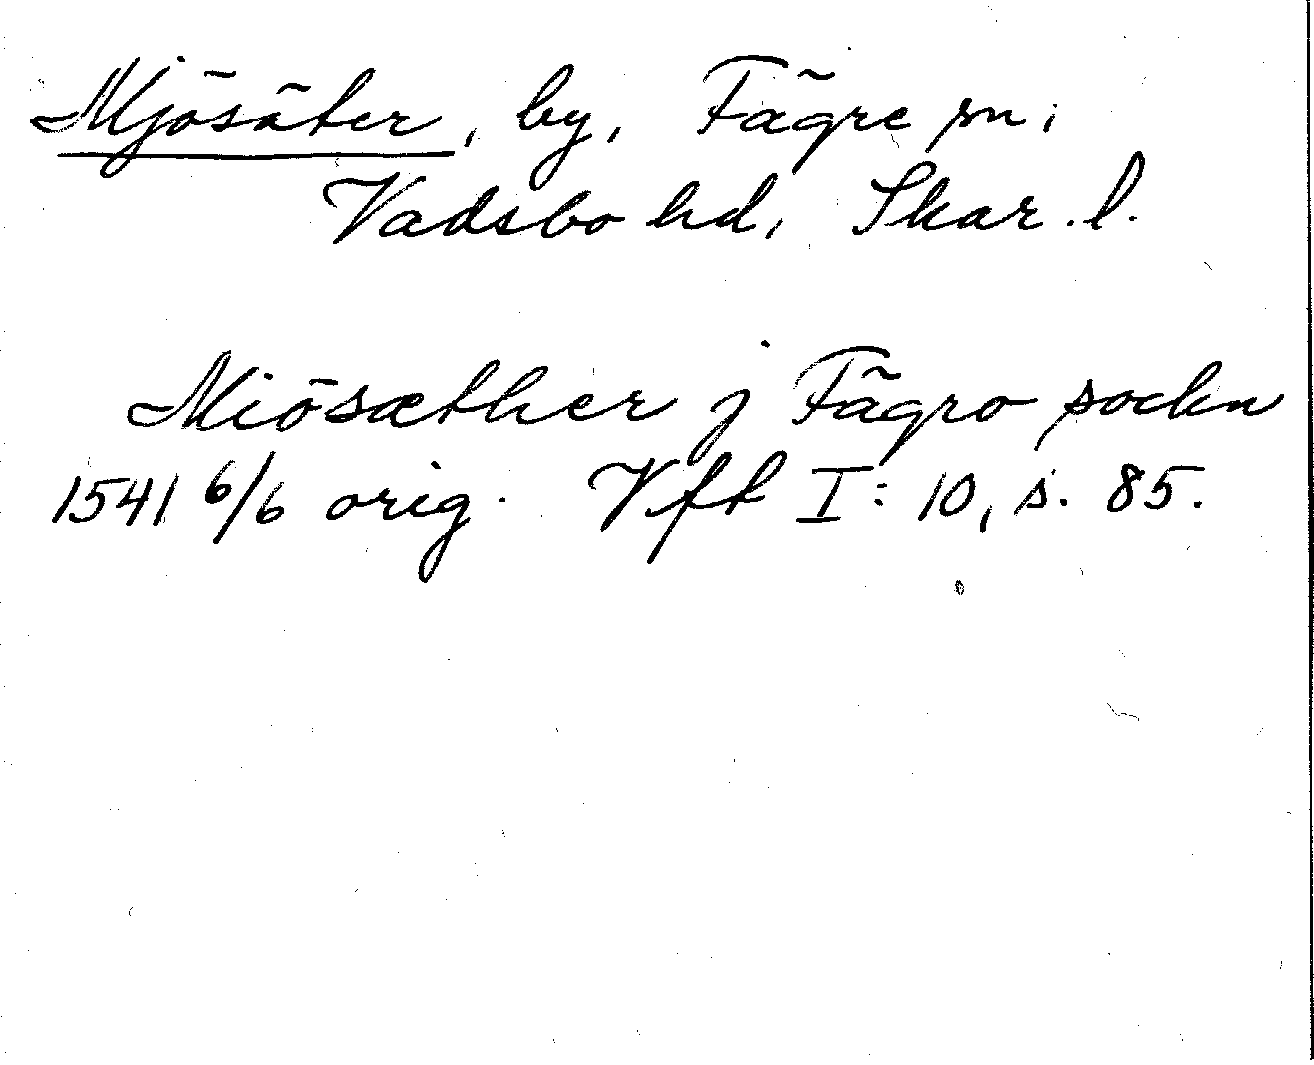 Mjösäter, by, Fägre sn,
Vadsbo hd, Skar. l.
Miösæther j Fägro sockn
1541 6/6 orig. Vft I: 10, s. 85.